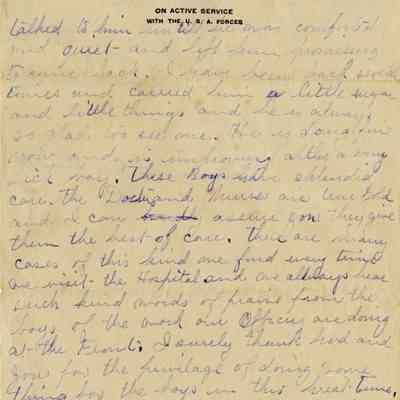 ON ACTIVE SERVICE
WITH THE U. S. A. FORCES
talked to him until he was comfortable
and quiet and left him promising
to come back. I have been back several
times and carried him a little sugar
and little things and he is always
so glad to see one. He is doing fine
now and is improving after a very
sick way. These Boys have splendid
care. The Doctors and Nurses are true Gold
and I can assure you they give
them the best of care. There are many
cases of this kind we find every time
we visit the Hospital and we always hear
such kind words of praise from the
boys of the work our Officers are doing
at the Front. I surely thank God and
you for the privilage of doing some
thing for the boys in this great time.